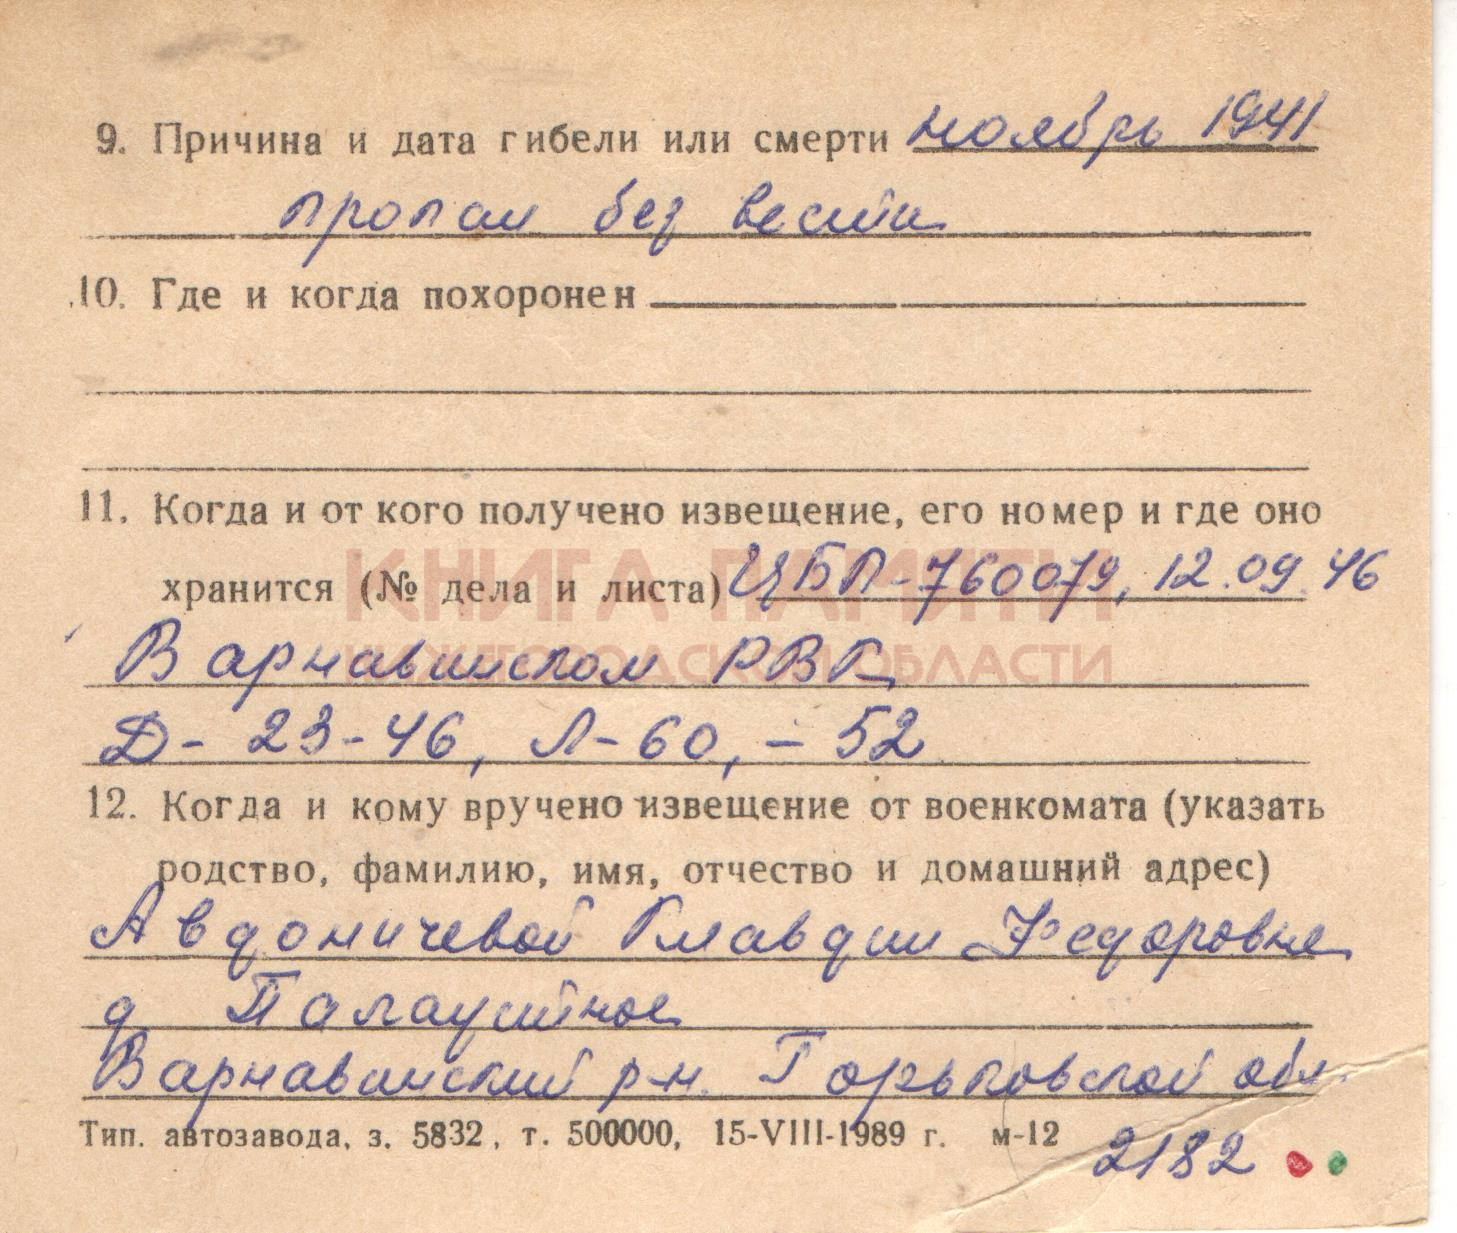 9. Причина и дата гибели или смерти ноябрь 1941
пропал без вести
10. Где и когда похоронен
11. Когда и от кого получено извещение, его номер и где оно
хранится (№ дела и листа) ЦБП-760079, 12.09.46
КНИГА ПАМЯТИ
НИЖЕГОРОДСКОЙ ОБЛАСТИ
Варнавинском РВК
Д- 23-46, Л-60, - 52
12. Когда и кому вручено извещение от военкомата (указать
родство, фамилию, имя, отчество и домашний адрес)
Авдоничевой Клавдии Федоровне
д
Варнавинский р-н. Горьковской обл.
Тип. автозавода, з. 5832, т. 500000, 15-VIII-1989 г. м-12
2182